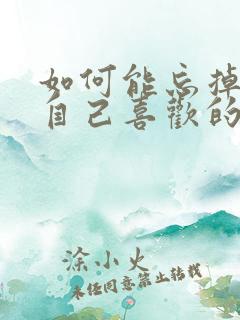 如何能忘掉
自己喜歡的
涂小火
未经同意禁止转载